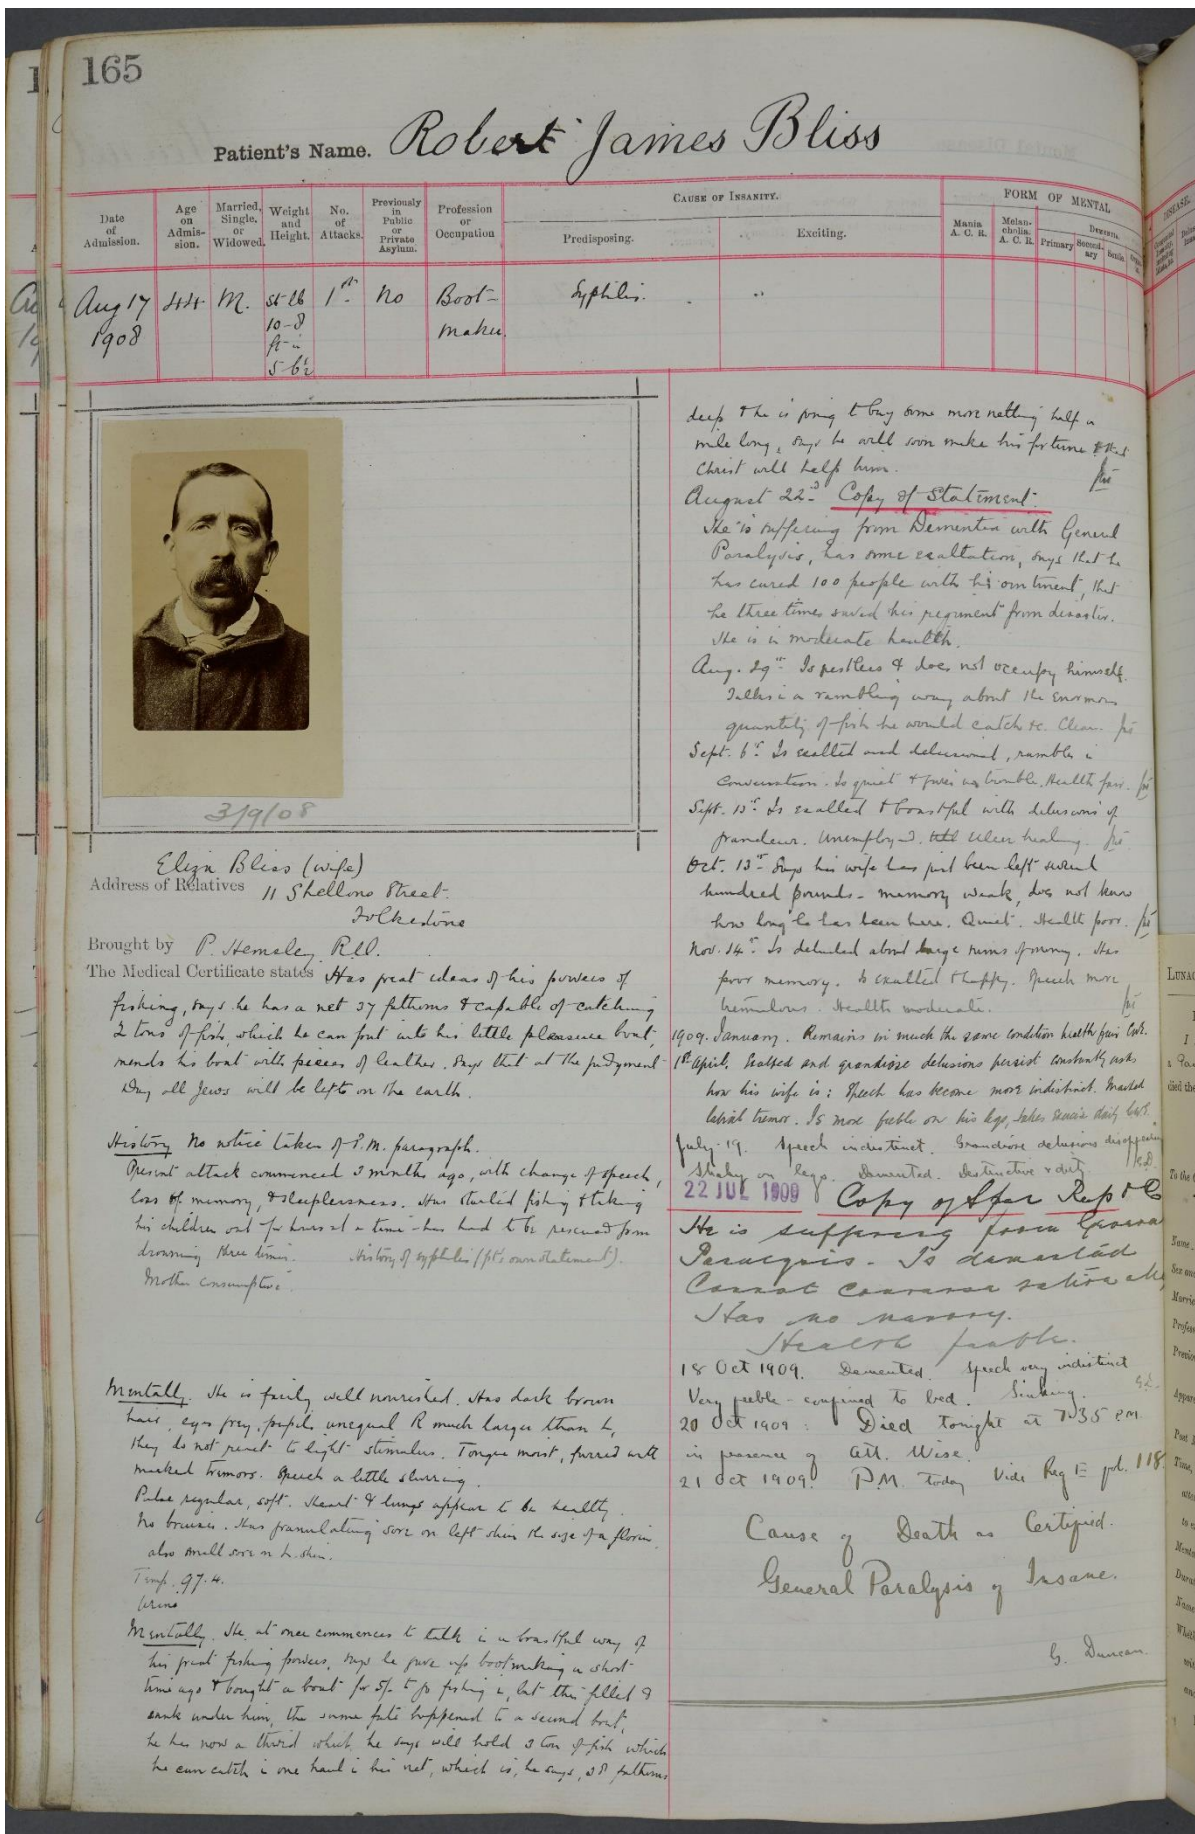 165
Patient's Name. Robert James Bliss
Date of Admission.
Age on Admission.
Married, Single, or Widowed.
Weight and Height.
No. of Attacks.
Previously in Public or Private Asylum.
Profession or Occupation
CAUSE OF INSANITY.
Predisposing.
Exciting.
FORM OF MENTAL
DISEASE.
Mania A. C. R.
Melancholia. A. C. R.
DEMENTIA.
Primary
Secondary
Senile.
Aug 17 1908
44
M.
st lb 10-8 ft in 5-6½
1st
No
Boot-maker.
Syphilis.
3/9/08
Eliza Bliss (wife)
Address of Relatives 11 Shellons Street
Folkestone
Brought by P. Hemsley R.O.
The Medical Certificate states Has great ideas of his powers of
fishing, says he has a net 37 fathoms & capable of catching
2 tons of fish, which he can put into his little pleasure boat,
mends his boat with pieces of leather. Says that at the judgment
Day all Jews will be left on the earth.
History No notice taken of P.M. paragraph.
Present attack commenced 3 months ago, with change of speech,
loss of memory, & sleeplessness. Has started fishing & taking
his children out for hours at a time - has had to be rescued from
drowning three times. History of syphilis (pt's own statement).
Mother consumptive.
Mentally. He is fairly well nourished. Has dark brown
hair, eyes grey, pupils unequal R much larger than L,
they do not react to light stimulus. Tongue moist, furred with
marked tremors. Speech a little slurring.
Pulse regular, soft. Heart & lungs appear to be healthy.
No bruises. Has granulating sore on left shin the size of a florin,
also small sore on L. shin.
Temp. 97.4.
Urine
Mentally. He at once commences to talk in a boastful way of
his great fishing powers, says he gave up bootmaking a short
time ago & bought a boat for 5/- to go fishing in, but this filled &
sank under him, the same fate happened to a second boat,
he has now a third which he says will hold 3 ton of fish which
he can catch in one haul in his net, which is, he says, 38 fathoms
deep & he is going to buy some more netting half a
mile long, says he will soon make his fortune & that
Christ will help him.
August 22nd Copy of Statement.
He is suffering from Dementia with General
Paralysis, has some exaltation, says that he
has cured 100 people with his ointment, that
he three times saved his regiment from disaster.
He is in moderate health.
Aug. 29th Is restless & does not occupy himself.
Talks in a rambling way about the enormous
quantity of fish he would catch &c. Clean.
Sept. 6th Is exalted and delusional, rambles in
conversation. Is quiet & gives no trouble, Health fair.
Sept. 13th Is exalted & boastful with delusions of
grandeur. Unemployed. Ulcer healing.
Oct. 13th Says his wife has just been left several
hundred pounds - memory weak, does not know
how long he has been here. Quiet. Health poor.
Nov. 14th Is deluded about large sums of money. Has
poor memory. Is exalted & happy. Speech more
tremulous. Health moderate.
1909. January. Remains in much the same condition health fair
1st April. Exalted and grandiose delusions persist constantly asks
how his wife is: Speech has become more indistinct. Marked
labial tremor. Is more feeble on his legs, takes exercise daily
July 19. Speech indistinct. Grandiose delusions disappearing
Shaky on legs. Demented. Destructive & dirty. G.D.
22 JUL 1909 Copy of Spec Rept
He is suffering from General
Paralysis. Is demented
Cannot converse rationally
Has no memory.
Health feeble.
18 Oct 1909. Demented. Speech very indistinct
Very feeble - confined to bed. Sinking. G.D.
20 Oct 1909: Died tonight at 7.35 P.M.
in presence of Att. Wise.
21 Oct 1909. P.M. today Vide Reg E fol. 118.
Cause of Death as Certified.
General Paralysis of Insane.
G. Duncan.